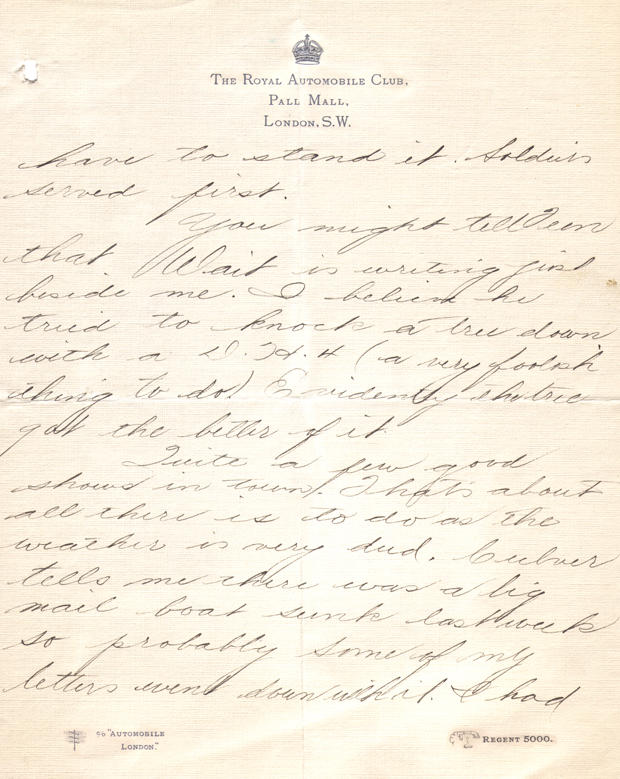 THE ROYAL AUTOMOBILE CLUB,
PALL MALL,
LONDON, S.W.
have to stand it. Soldiers
served first.
You might tell
that Wait is writing just
beside me. I believe he
tried to knock a tree down
with a D.H.4 (a very foolish
thing to do) Evidently the tree
got the better of it
Quite a few good
shows in town. That's about
all there is to do as the
weather is very dud. Culver
tells me there was a big
mail boat sunk last week
so probably some of my
letters went down with it. I had
"AUTOMOBILE
LONDON."
REGENT 5000.